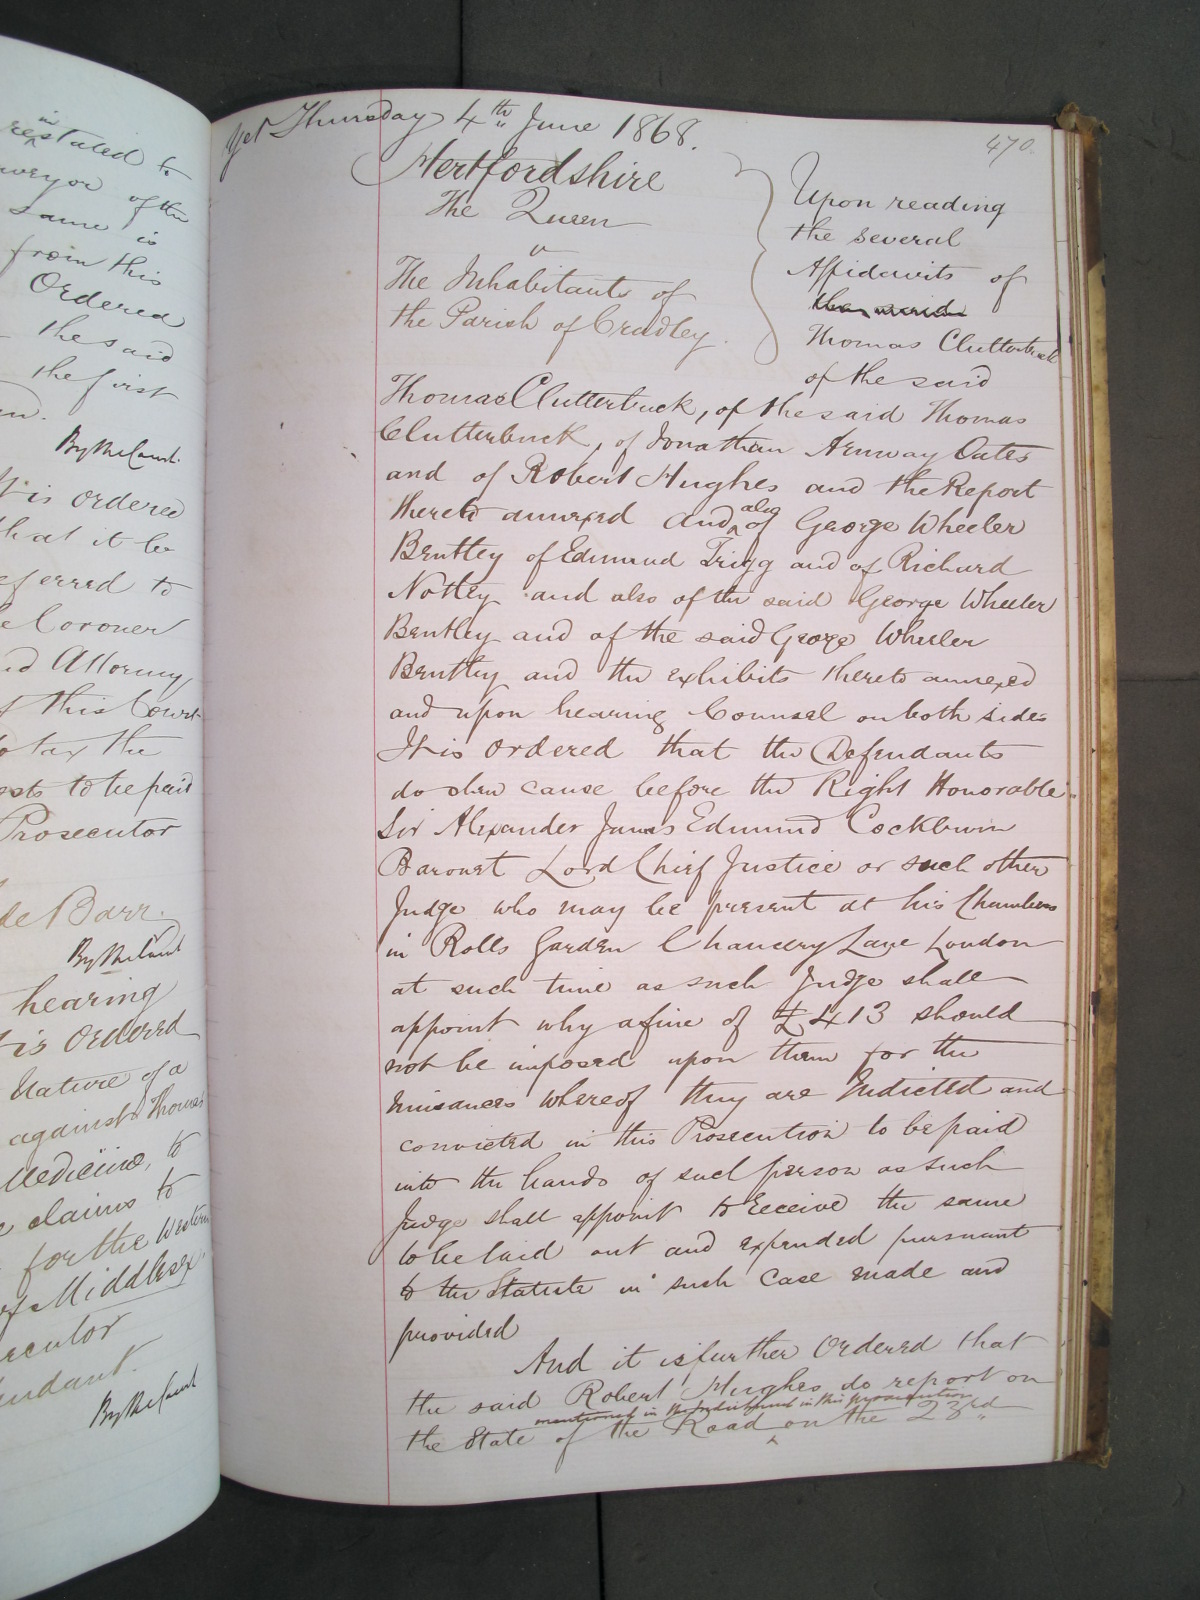 in
restated to
of the
same is
from this
Ordered
the said
the first
By the Court
it is ordered
that it be
referred to
the Coroner
and Attorney
of this Court
to tax the
costs to be paid
Prosecutor
de Barr.
By the Court
hearing
it is Ordered
Nature of a
against Thomas
Medicine, to
claims to
for the Western
of Middlesex.
By the Court
Yet Thursday 4th June 1868.
470.
Hertfordshire
The Queen
v
The Inhabitants of
the Parish of Cradley.
Upon reading
the several
Affidavits of
Thomas Clutterbuck
of the said
Thomas Clutterbuck, of the said Thomas
Clutterbuck, of Jonathan Armway Oates
and of Robert Hughes and the Report
thereto annexed and also of George Wheeler
Bentley of Edmund Trigg and of Richard
Notley and also of the said George Wheeler
Bentley and of the said George Wheeler
Bentley and the exhibits thereto annexed
and upon hearing Counsel on both sides
It is ordered that the Defendants
do shew cause before the Right Honorable
Sir Alexander James Edmund Cockburn
Baronet Lord Chief Justice or such other
Judge who may be present at his Chambers
in Rolls Garden Chancery Lane London
at such time as such Judge shall
appoint why a fine of £413 should
not be imposed upon them for the
nuisances whereof they are Indicted and
convicted in this Prosecution to be paid
into the hands of such person as such
Judge shall appoint to receive the same
to be laid out and expended pursuant
to the Statute in such case made and
provided
And it is further Ordered that
the said Robert Hughes do report on
mentioned in the Indictment in this prosecution
the State of the Road on the 23rd